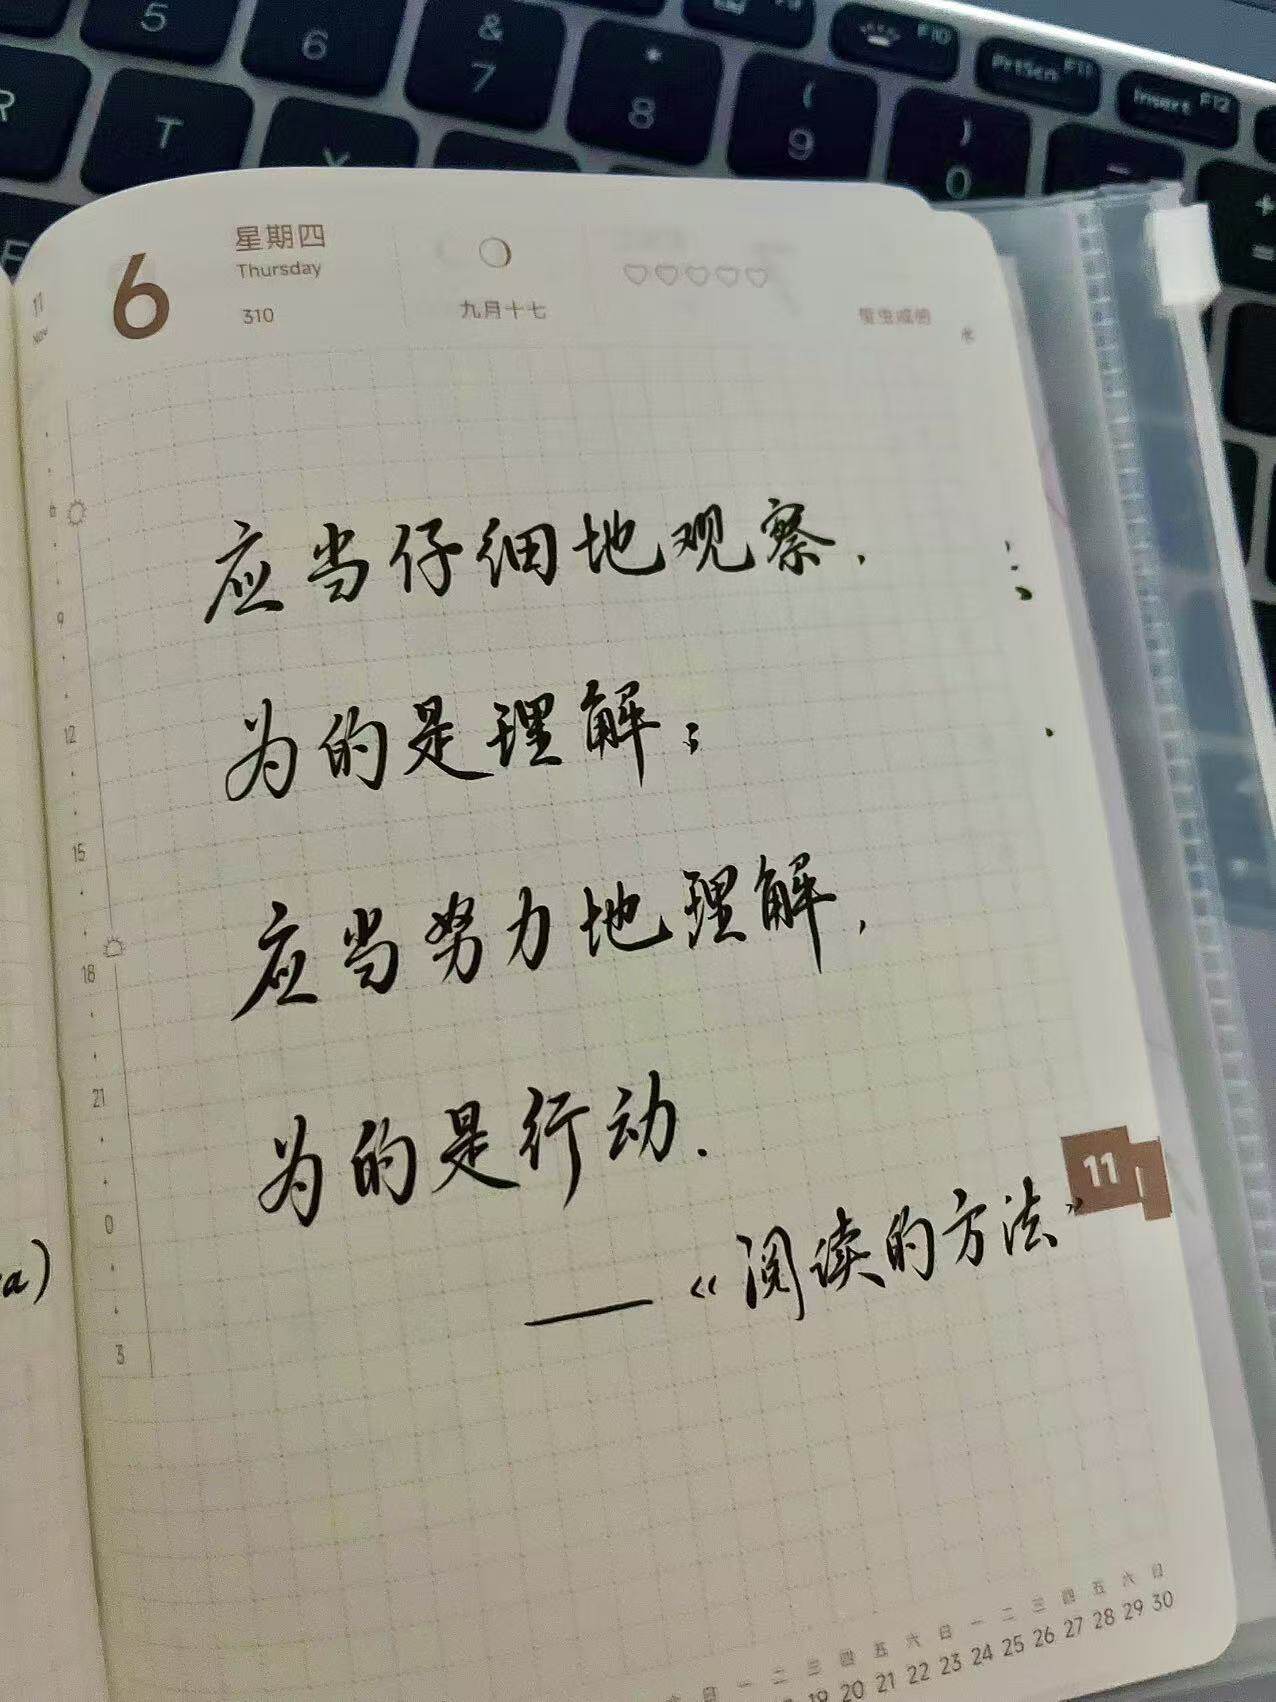 5
6
&
7
*
8
(
9
)
0
F10
PrtScn F11
Insert F12
R
T
Y
-
+
=
11
Nov
6
星期四
Thursday
310
九月十七
蛰虫咸俯
6
9
12
15
18
21
0
3
应当仔细地观察,
为的是理解;
应当努力地理解,
为的是行动.
——《阅读的方法》
11
a)
日 一 二 三 四 五 六 日 一 二 三 四 五 六 日
19 20 21 22 23 24 25 26 27 28 29 30